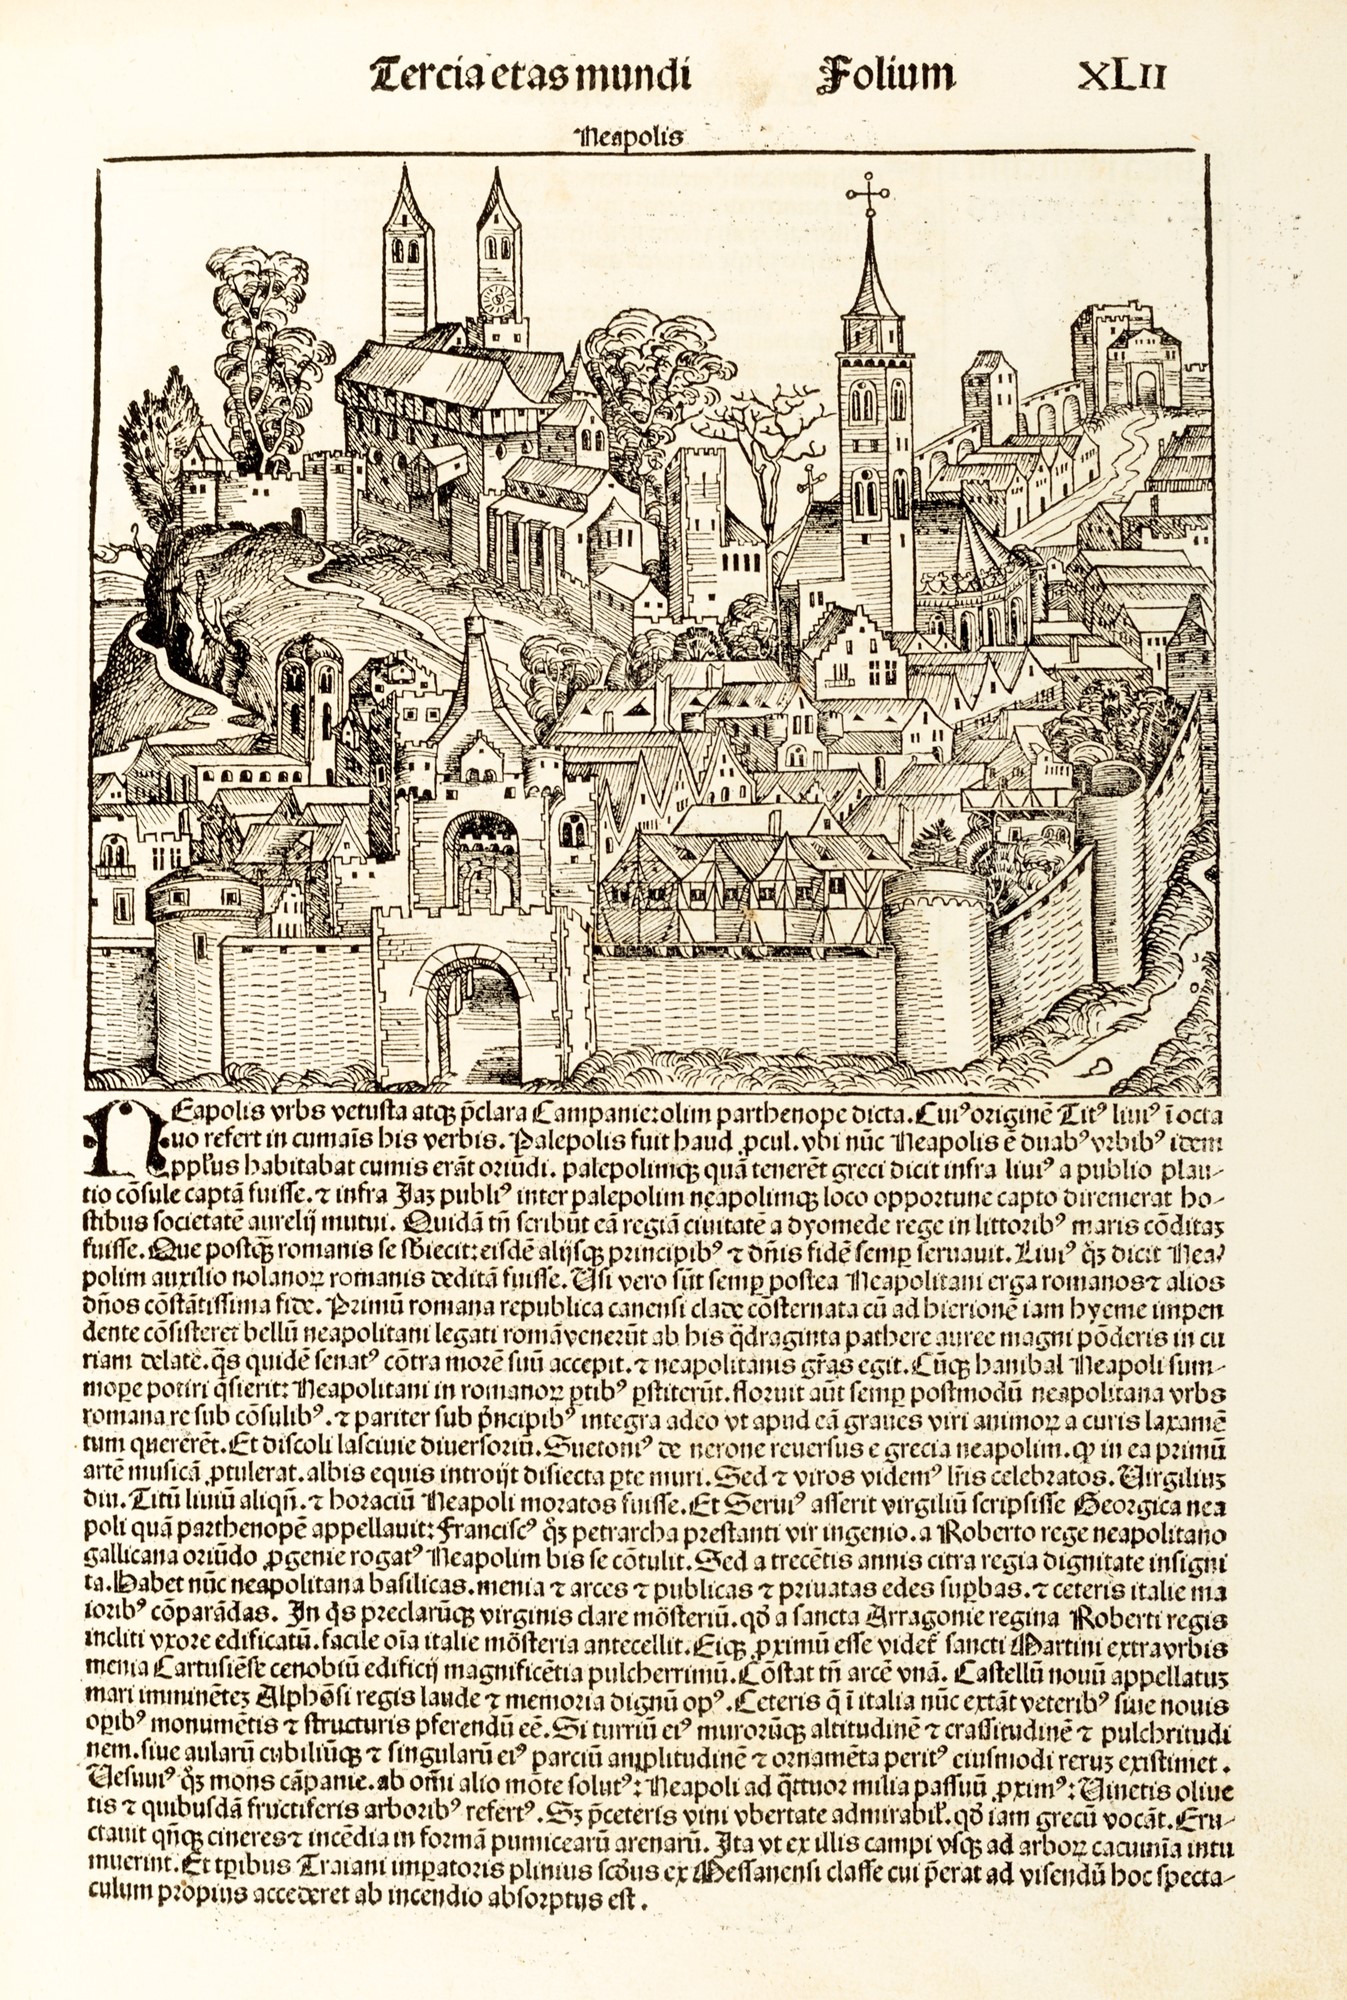 Tercia etas mundi Folium XLII
Neapolis
NEapolis vrbs vetusta atq̃ p̃clara Campanie: olim parthenope dicta. Cuiꝰ originẽ Titꝰ liuiꝰ ĩ octa
uo refert in cumais his verbis. Palepolis fuit haud ꝓcul. vbi nũc Neapolis ẽ duabꝰ vrbibꝰ idem
ppl̃us habitabat cumis erãt oriũdi. palepolimqꝫ quã tenerẽt greci dicit infra liuiꝰ a publio plau-
tio cõsule captã fuisse. ⁊ infra Jaꝫ publiꝰ inter palepolim neapolimqꝫ loco opportune capto diremerat ho-
stibus societatẽ aurelij mutui. Quidã tñ scribũt eã regiã ciuitatẽ a dyomede rege in littoribꝰ maris cõditaꝫ
fuisse. Que postqꝫ romanis se sbiecit: eisdẽ alijsqꝫ principibꝰ ⁊ dñis fidẽ semꝑ seruauit. Liuiꝰ qͦꝫ dicit Nea
polim auxilio nolanoꝝ romanis deditã fuisse. Usi vero sũt semꝑ postea Neapolitani erga romanos ⁊ alios
dños cõstãtissima fide. Primũ romana republica canensi clade cõsternata cũ ad hierionẽ iam hyeme impen
dente cõsisteret bellũ neapolitani legati romã venerũt ab his q̃draginta pathere auree magni põderis in cu
riam delate. q̃s quidẽ senatꝰ cõtra morẽ suũ accepit. ⁊ neapolitanis gr̃as egit. Cũqꝫ hanibal Neapoli sum-
mope potiri q̃sierit: Neapolitani in romanoꝝ ꝑtibꝰ ꝑstiterũt. floruit aũt semꝑ postmodũ neapolitana vrbs
romana re sub cõsulibꝰ. ⁊ pariter sub p̃ncipibꝰ integra adeo vt apud eã graues viri animoꝝ a curis laxamẽ
tum quererẽt. Et discoli lasciuie diuersoriũ. Suetoniꝰ de nerone reuersus e grecia neapolim. ꝙ in ea primũ
artẽ musicã ꝓtulerat. albis equis introijt disiecta ꝑte muri. Sed ⁊ viros videmꝰ lr̃is celebratos. Virgiliuꝫ
diu. Titũ liuiũ aliqñ. ⁊ horaciũ Neapoli moratos fuisse. Et Seruiꝰ asserit virgiliũ scripsisse Georgica nea
poli quã parthenopẽ appellauit: Franciscꝰ qͦꝫ petrarcha prestanti vir ingenio. a Roberto rege neapolitano
gallicana oriũdo ꝓgenie rogatꝰ Neapolim bis se cõtulit. Sed a trecẽtis annis citra regia dignitate insigni
ta. Habet nũc neapolitana basilicas. menia ⁊ arces ⁊ publicas ⁊ priuatas edes suꝑbas. ⁊ ceteris italie ma
ioribꝰ cõparãdas. In q̃s preclarũqꝫ virginis clare mõsteriũ. qð a sancta Arragonie regina Roberti regis
incliti vxore edificatũ. facile oĩa italie mõsteria antecellit. Eiqꝫ ꝓximũ esse videt̃ sancti Martini extra vrbis
menia Cartusiẽse cenobiũ edificij magnificẽtia pulcherrimũ. Cõstat tñ arcẽ vnã. Castellũ nouũ appellatuꝫ
mari imminẽteꝫ Alphõsi regis laude ⁊ memoria dignũ opꝰ. Ceteris q̃ ĩ italia nũc extãt veteribꝰ siue nouis
oꝑibꝰ monumẽtis ⁊ structuris p̃ferendũ eẽ. Si turriũ eiꝰ murorũqꝫ altitudinẽ ⁊ crassitudinẽ ⁊ pulchritudi
nem. siue aularũ cubiliũqꝫ ⁊ singularũ eiꝰ parciũ amplitudinẽ ⁊ ornamẽta peritꝰ eiusmodi reruꝫ existimet.
Vesuuiꝰ qͦꝫ mons cãpanie. ab om̃i alio mõte solutꝰ: Neapoli ad q̃ttuor milia passuũ ꝓximꝰ: Vinetis oliue
tis ⁊ quibusdã fructiferis arboribꝰ refertꝰ. Sꝫ p̃ceteris vini vbertate admirabil̃. qð iam grecũ vocãt. Eru-
ctauit qñqꝫ cineres ⁊ incẽdia in formã pumicearũ arenarũ. Ita vt ex illis campi vsqꝫ ad arboꝝ cacumĩa intu
muerint. Et tꝑibus Traiani imꝑatoris plinius scðus ex Messanensi classe cui p̃erat ad visendũ hoc specta-
culum propius accederet ab incendio absorptus est.